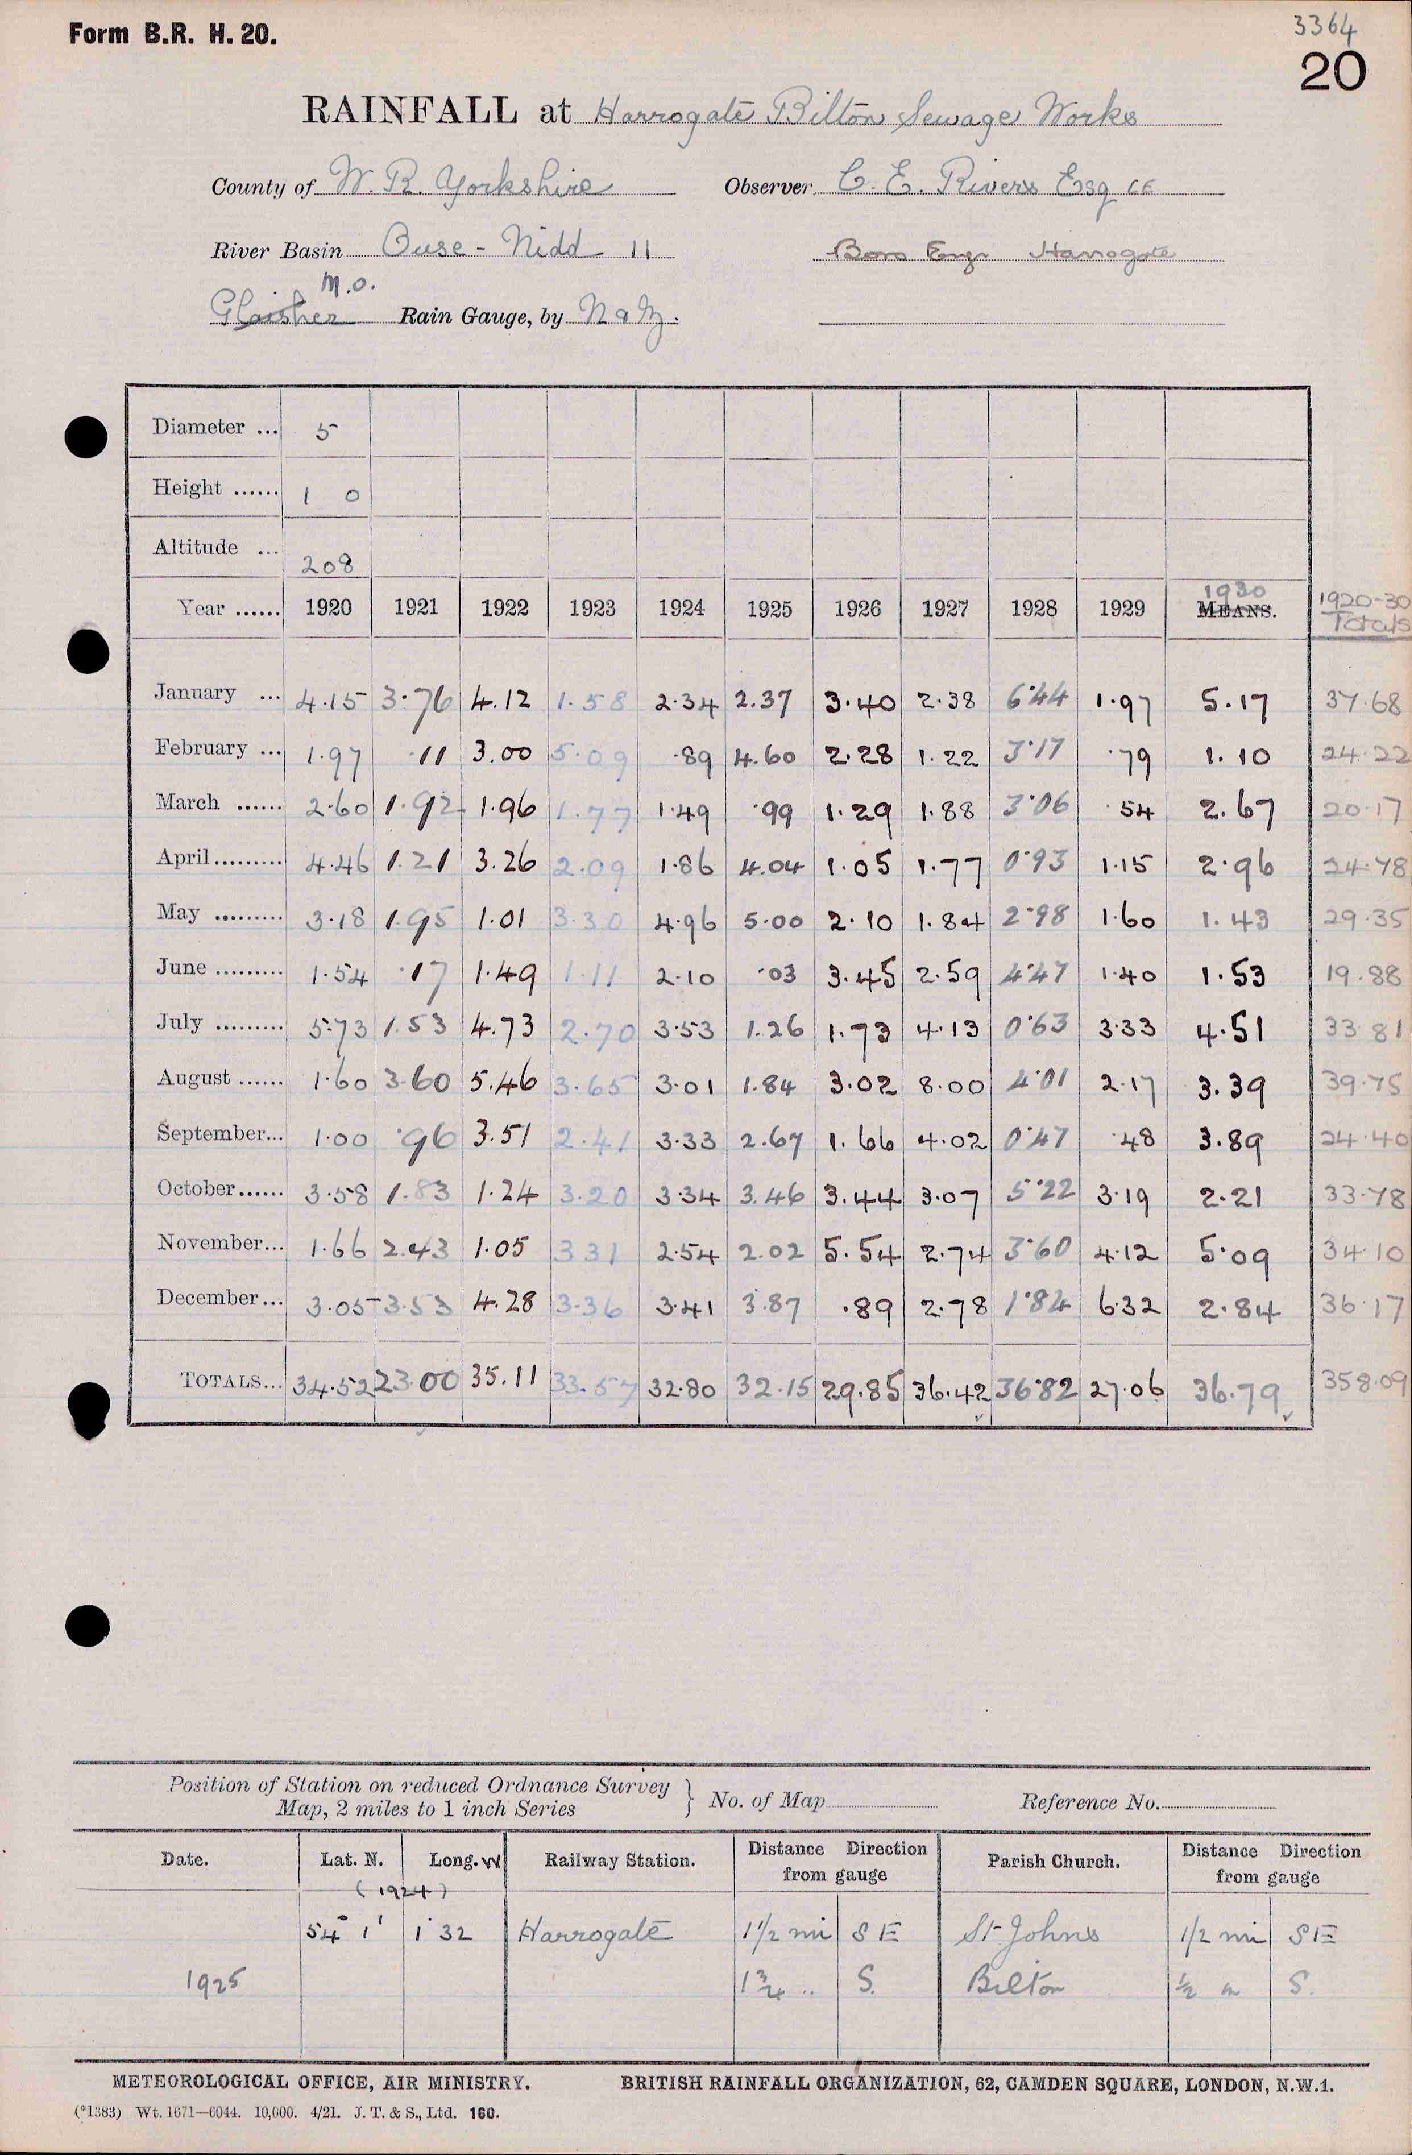 Form B.R. H. 20.
3364
20
RAINFALL at Harrogate Bilton Sewage Works
County of W. R. Yorkshire Observer C. E. Rivers Esq CE
River Basin Ouse - Nidd 11 Boro Engr Harrogate
M.O.
Glaisher Rain Gauge, by N & Z.
Diameter ... 5
Height ...... 1 0
Altitude ... 208
1930 1920-30
Year ...... 1920 1921 1922 1923 1924 1925 1926 1927 1928 1929 MEANS. Totals
January ... 4.15 3.76 4.12 1.58 2.34 2.37 3.40 2.38 6.44 1.97 5.17 37.68
February ... 1.97 .11 3.00 5.09 .89 4.60 2.28 1.22 3.17 .79 1.10 24.22
March ...... 2.60 1.92 1.96 1.77 1.49 .99 1.29 1.88 3.06 .54 2.67 20.17
April......... 4.46 1.21 3.26 2.09 1.86 4.04 1.05 1.77 0.93 1.15 2.96 24.78
May ......... 3.18 1.95 1.01 3.30 4.96 5.00 2.10 1.84 2.98 1.60 1.43 29.35
June ......... 1.54 .17 1.49 1.11 2.10 .03 3.45 2.59 4.47 1.40 1.53 19.88
July ......... 5.73 1.53 4.73 2.70 3.53 1.26 1.73 4.13 0.63 3.33 4.51 33.81
August ...... 1.60 3.60 5.46 3.65 3.01 1.84 3.02 8.00 4.01 2.17 3.39 39.75
September... 1.00 .96 3.51 2.41 3.33 2.67 1.66 4.02 0.47 .48 3.89 24.40
October...... 3.58 1.83 1.24 3.20 3.34 3.46 3.44 3.07 5.22 3.19 2.21 33.78
November... 1.66 2.43 1.05 3.31 2.54 2.02 5.54 2.74 3.60 4.12 5.09 34.10
December... 3.05 3.53 4.28 3.36 3.41 3.87 .89 2.78 1.84 6.32 2.84 36.17
TOTALS... 34.52 23.00 35.11 33.57 32.80 32.15 29.85 36.42 36.82 27.06 36.79 358.09
Position of Station on reduced Ordnance Survey
Map, 2 miles to 1 inch Series } No. of Map Reference No.
Date. Lat. N. Long. W Railway Station. Distance Direction from gauge Parish Church. Distance Direction from gauge
(1924)
54° 1' 1 32 Harrogate 1 1/2 mi S E St Johns 1/2 mi S E
1925 1 3/4 .. S. Bilton 1/2 m S.
METEOROLOGICAL OFFICE, AIR MINISTRY. BRITISH RAINFALL ORGANIZATION, 62, CAMDEN SQUARE, LONDON, N.W.1.
(*1383) Wt. 1671—6044. 10,000. 4/21. J. T. & S., Ltd. 160.